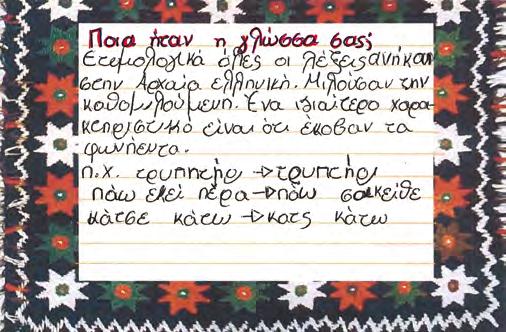 Ποια ήταν η γλώσσα σας;
Ετυμολογικά όλες οι λέξεις ανήκαν
στην Αρχαία ελληνική. Μιλούσαν την
καθομιλούμενη. Ένα ιδιαίτερο χαρα-
κτηριστικό είναι ότι έκοβαν τα
φωνήεντα.
π.χ. τρυπητήρ → τρυπτήρι
πάω εκεί πέρα → πάω σακείθε
κάτσε κάτω → κατς κάτω